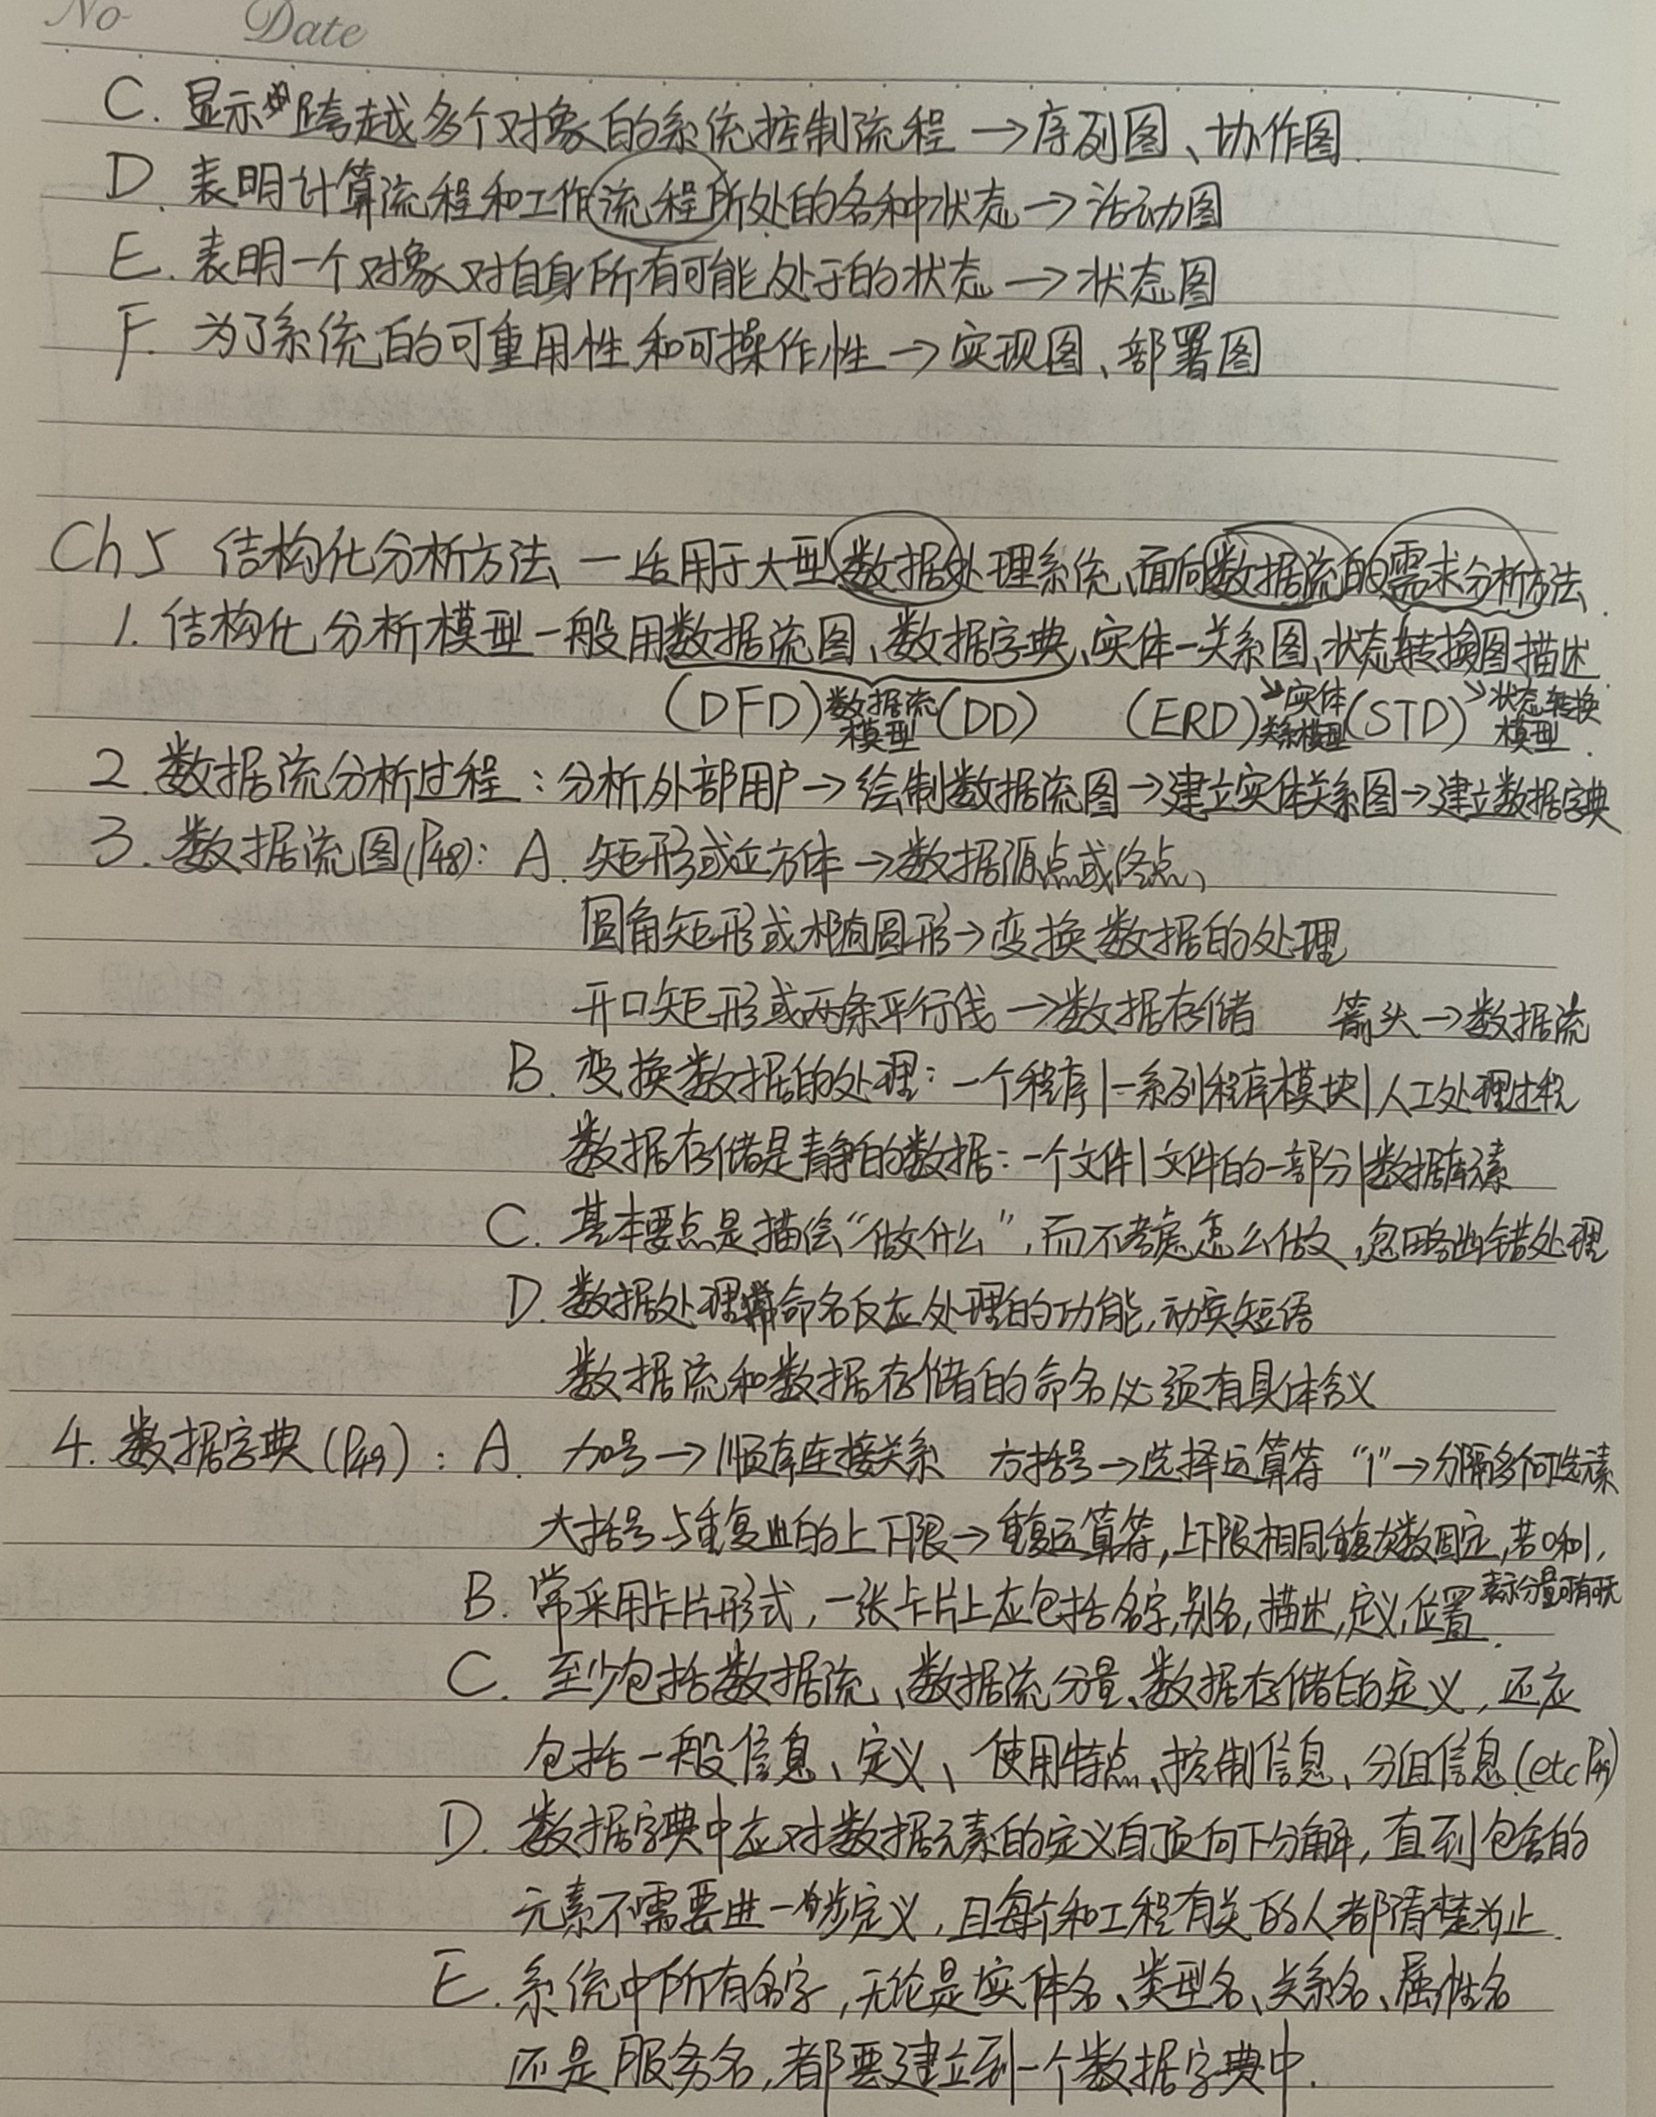 No Date
C. 显示跨越多个对象的系统控制流程→序列图、协作图.
D. 表明计算流程和工作流程所处的各种状态→活动图
E. 表明一个对象对自身所有可能处于的状态→状态图
F. 为了系统的可重用性和可操作性→实现图、部署图
Ch5 结构化分析方法 — 适用于大型数据处理系统、面向数据流的需求分析方法.
1. 结构化分析模型一般用数据流图、数据字典、实体—关系图、状态转换图描述.
(DFD)数据流模型(DD) (ERD)→实体关系模型(STD)→状态转换模型.
2. 数据流分析过程：分析外部用户→绘制数据流图→建立实体关系图→建立数据字典
3. 数据流图(P48): A. 矩形或立方体→数据源点或终点、
圆角矩形或椭圆形→变换数据的处理
开口矩形或两条平行线→数据存储 箭头→数据流
B. 变换数据的处理：一个程序|一系列程序模块|人工处理过程
数据存储是静的数据：一个文件|文件的一部分|数据库元素
C. 基本要点是描绘“做什么”,而不考虑怎么做,忽略出错处理
D. 数据处理命名反应处理的功能,动宾短语
数据流和数据存储的命名必须有具体含义
4. 数据字典(P49): A. 加号→顺序连接关系 方括号→选择运算符 “|”→分隔多个可选元素
大括号与重复的上下限→重复运算符,上下限相同重复次数固定,若0和1,
表示分量可有可无
B. 常采用卡片形式,一张卡片上应包括名字,别名,描述,定义,位置.
C. 至少包括数据流、数据流分量、数据存储的定义,还应
包括一般信息、定义、使用特点、控制信息、分组信息(etc P49)
D. 数据字典中应对数据元素的定义自顶向下分解,直到包含的
元素不需要进一步定义,且每个和工程有关的人都清楚为止.
E. 系统中所有名字,无论是实体名、类型名、关系名、属性名
还是服务名,都要建立到一个数据字典中.